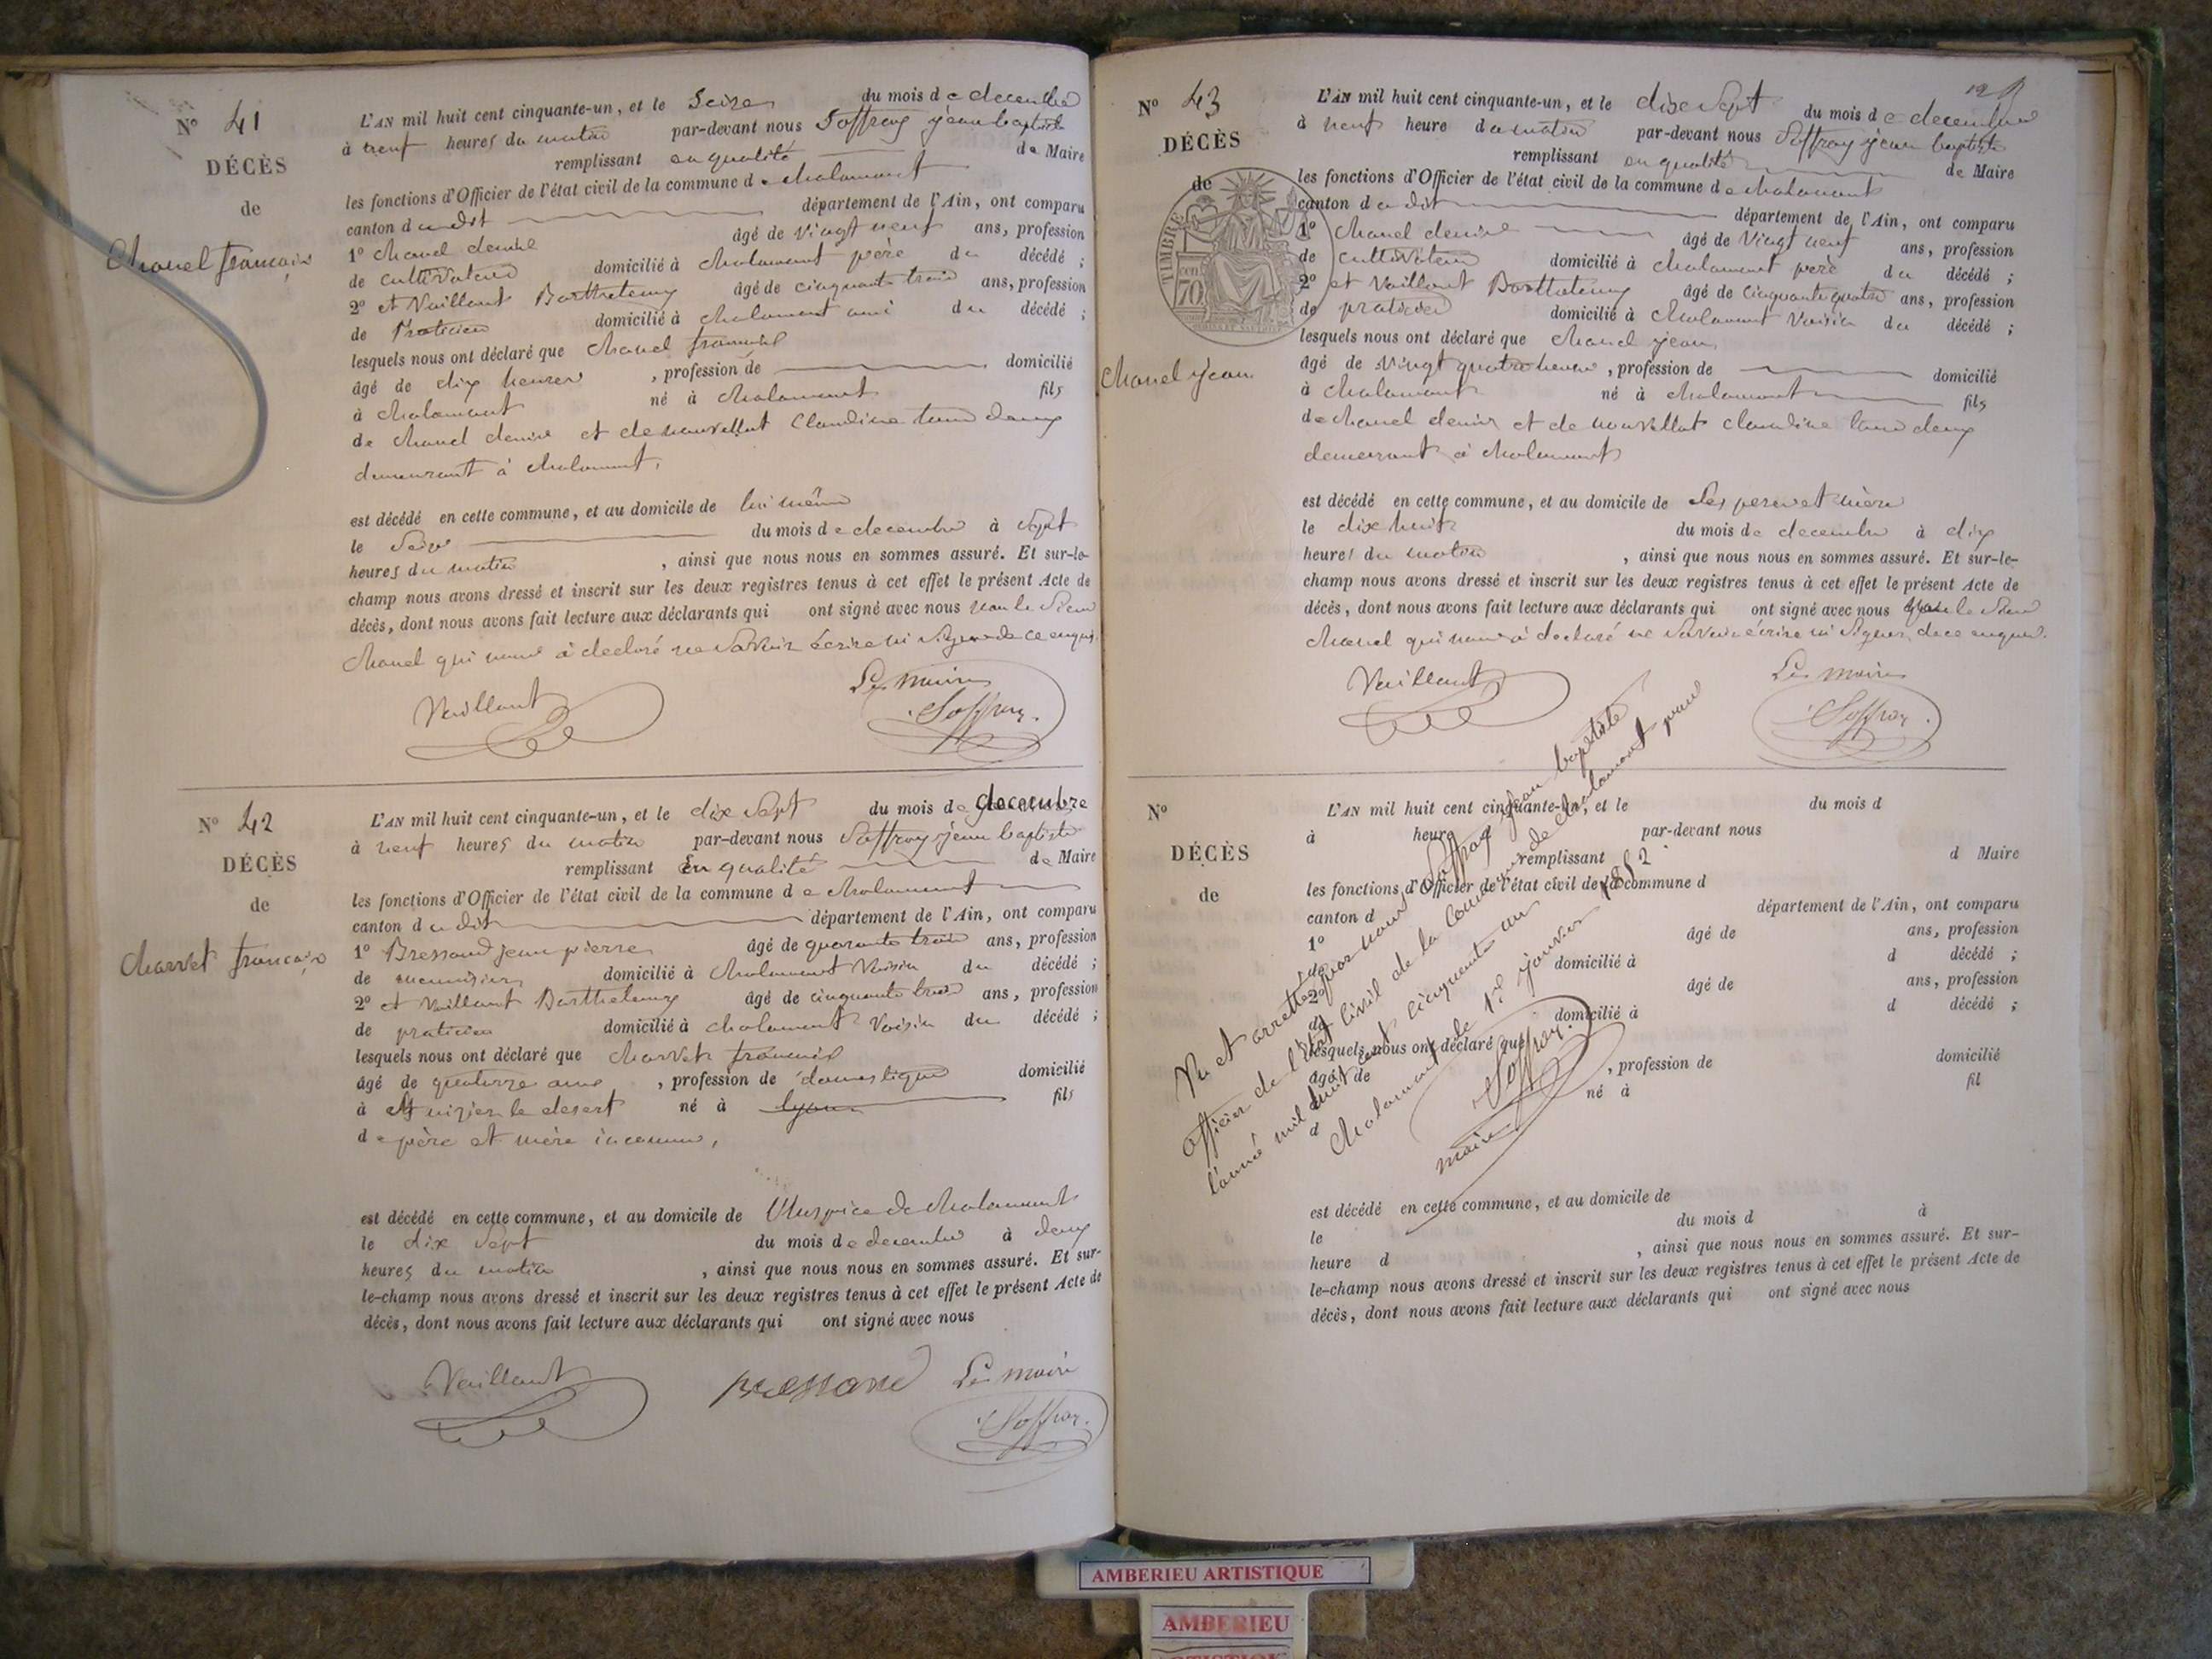 N° 41
DÉCÈS
de
Chanel francois
L'AN mil huit cent cinquante-un, et le Seize du mois de decembre
à neuf heures du matin par-devant nous Soffray jean baptiste
remplissant en qualité de Maire
les fonctions d'Officier de l'état civil de la commune de chalamont
canton du dit département de l'Ain, ont comparu
1° chanel denise âgé de vingt neuf ans, profession
de cultivateur domicilié à chalamont père du décédé ;
2° et Vaillant Barthelemy âgé de cinquante trois ans, profession
de Praticien domicilié à chalamont ami du décédé ;
lesquels nous ont déclaré que chanel francois
âgé de dix heures , profession de domicilié
à chalamont né à chalamont fils
de chanel denise et de nouvellat Claudine tous deux
demeurant à chalamont,
est décédé en cette commune, et au domicile de lui même
le Seize du mois de decembre à Sept
heures du matin , ainsi que nous nous en sommes assuré. Et sur-le-
champ nous avons dressé et inscrit sur les deux registres tenus à cet effet le présent Acte de
décès, dont nous avons fait lecture aux déclarants qui ont signé avec nous non le Sieur
chanel qui nous à declaré ne Savoir ecrire ni Signer de ce enquis
Vaillant
Le maire
Soffray
N° 42
DÉCÈS
de
charvet francois
L'AN mil huit cent cinquante-un, et le dix Sept du mois de decembre
à neuf heures du matin par-devant nous Soffray jean baptiste
remplissant En qualité de Maire
les fonctions d'Officier de l'état civil de la commune de chalamont
canton du dit département de l'Ain, ont comparu
1° Bressand jean pierre âgé de quarante trois ans, profession
de menuisier domicilié à chalamont Voisin du décédé ;
2° et Vaillant Barthelemy âgé de cinquante trois ans, profession
de praticien domicilié à chalamont Voisin du décédé ;
lesquels nous ont déclaré que charvet francois
âgé de quatorze ans , profession de domestique domicilié
à St nizier le desert né à lyon fils
de père et mère inconnu,
est décédé en cette commune, et au domicile de l'Hospice de chalamont
le dix Sept du mois de decembre à deux
heures du matin , ainsi que nous nous en sommes assuré. Et sur-
le-champ nous avons dressé et inscrit sur les deux registres tenus à cet effet le présent Acte de
décès, dont nous avons fait lecture aux déclarants qui ont signé avec nous
Vaillant
Bressand
Le maire
Soffray
N° 43
DÉCÈS
de
TIMBRE
70
chanel jean
L'AN mil huit cent cinquante-un, et le dix Sept du mois de decembre
à neuf heure du matin par-devant nous Soffray jean baptiste
remplissant en qualité de Maire
les fonctions d'Officier de l'état civil de la commune de chalamont
canton du dit département de l'Ain, ont comparu
1° chanel denise âgé de Vingt neuf ans, profession
de cultivateur domicilié à chalamont père du décédé ;
2° et Vaillant Barthelemy âgé de cinquante quatre ans, profession
de praticien domicilié à chalamont Voisin du décédé ;
lesquels nous ont déclaré que chanel jean
âgé de Vingt quatre heures , profession de domicilié
à chalamont né à chalamont fils
de chanel denis et de nouvellat claudine tous deux
demeurant à chalamont
est décédé en cette commune, et au domicile de Ses pere et mère
le dix huit du mois de decembre à dix
heures du matin , ainsi que nous nous en sommes assuré. Et sur-le-
champ nous avons dressé et inscrit sur les deux registres tenus à cet effet le présent Acte de
décès, dont nous avons fait lecture aux déclarants qui ont signé avec nous le Sieur
chanel qui nous à declaré ne Savoir écrire ni Signer de ce enquis.
Vaillant
Le maire
Soffray
N°
DÉCÈS
de
L'AN mil huit cent cinquante-un, et le du mois d
à heure d par-devant nous
remplissant d Maire
les fonctions d'Officier de l'état civil de la commune d
canton d département de l'Ain, ont comparu
1° âgé de ans, profession
de domicilié à d décédé ;
2° âgé de ans, profession
de domicilié à d décédé ;
lesquels nous ont déclaré que
âgé de , profession de domicilié
à né à fil
d
est décédé en cette commune, et au domicile de
le du mois d à
heure d , ainsi que nous nous en sommes assuré. Et sur-
le-champ nous avons dressé et inscrit sur les deux registres tenus à cet effet le présent Acte de
décès, dont nous avons fait lecture aux déclarants qui ont signé avec nous
Vu et arretté par nous Soffray jean baptiste
officier de l'état civil de la commune de chalamont pour
l'année mil huit cent cinquante un
Chalamont le 1er janvier 1852
Soffray
maire
AMBERIEU ARTISTIQUE
AMBERIEU
ARTISTIQUE